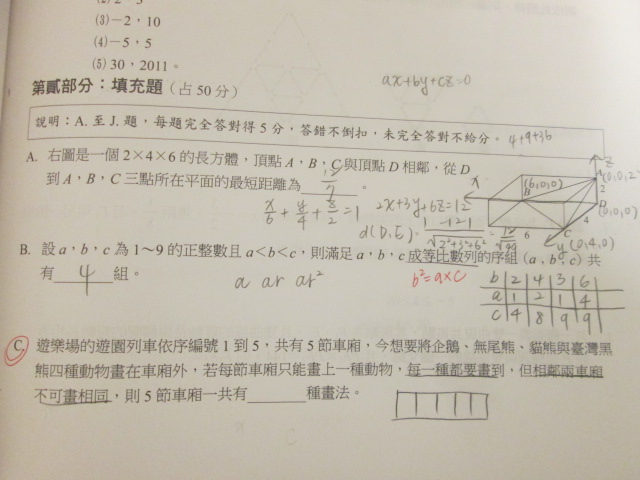 (3)-2，10
(4)-5，5
(5) 30，2011。
第貳部分：填充題（占 50 分）
ax+by+cz=0
說明：A. 至 J. 題，每題完全答對得 5 分，答錯不倒扣，未完全答對不給分。
4+9+36
A. 右圖是一個 2×4×6 的長方體，頂點 A，B，C 與頂點 D 相鄰，從 D
到 A，B，C 三點所在平面的最短距離為 12/7 。
x/6 + y/4 + z/2 = 1 2x+3y+6z=12
d(D,E)= |-12| / √2²+3²+6² = 12/√49
Z
A(0,0,2)
X
(6,0,0)
B
2
D
(0,0,0)
6
C
4
y(0,4,0)
B. 設 a，b，c 為 1～9 的正整數且 a<b<c，則滿足 a，b，c 成等比數列的序組（a，b，c）共
有 4 組。
a ar ar²
b²=a×c
b 2 4 3 6
a 1 2 1 4
c 4 8 9 9
C. 遊樂場的遊園列車依序編號 1 到 5，共有 5 節車廂，今想要將企鵝、無尾熊、貓熊與臺灣黑
熊四種動物畫在車廂外，若每節車廂只能畫上一種動物，每一種都要畫到，但相鄰兩車廂
不可畫相同，則 5 節車廂一共有 種畫法。